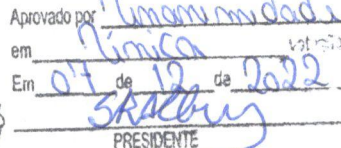 Aprovado por Unanimidade
em Única votação
Em 07 de 12 de 2022
PRESIDENTE